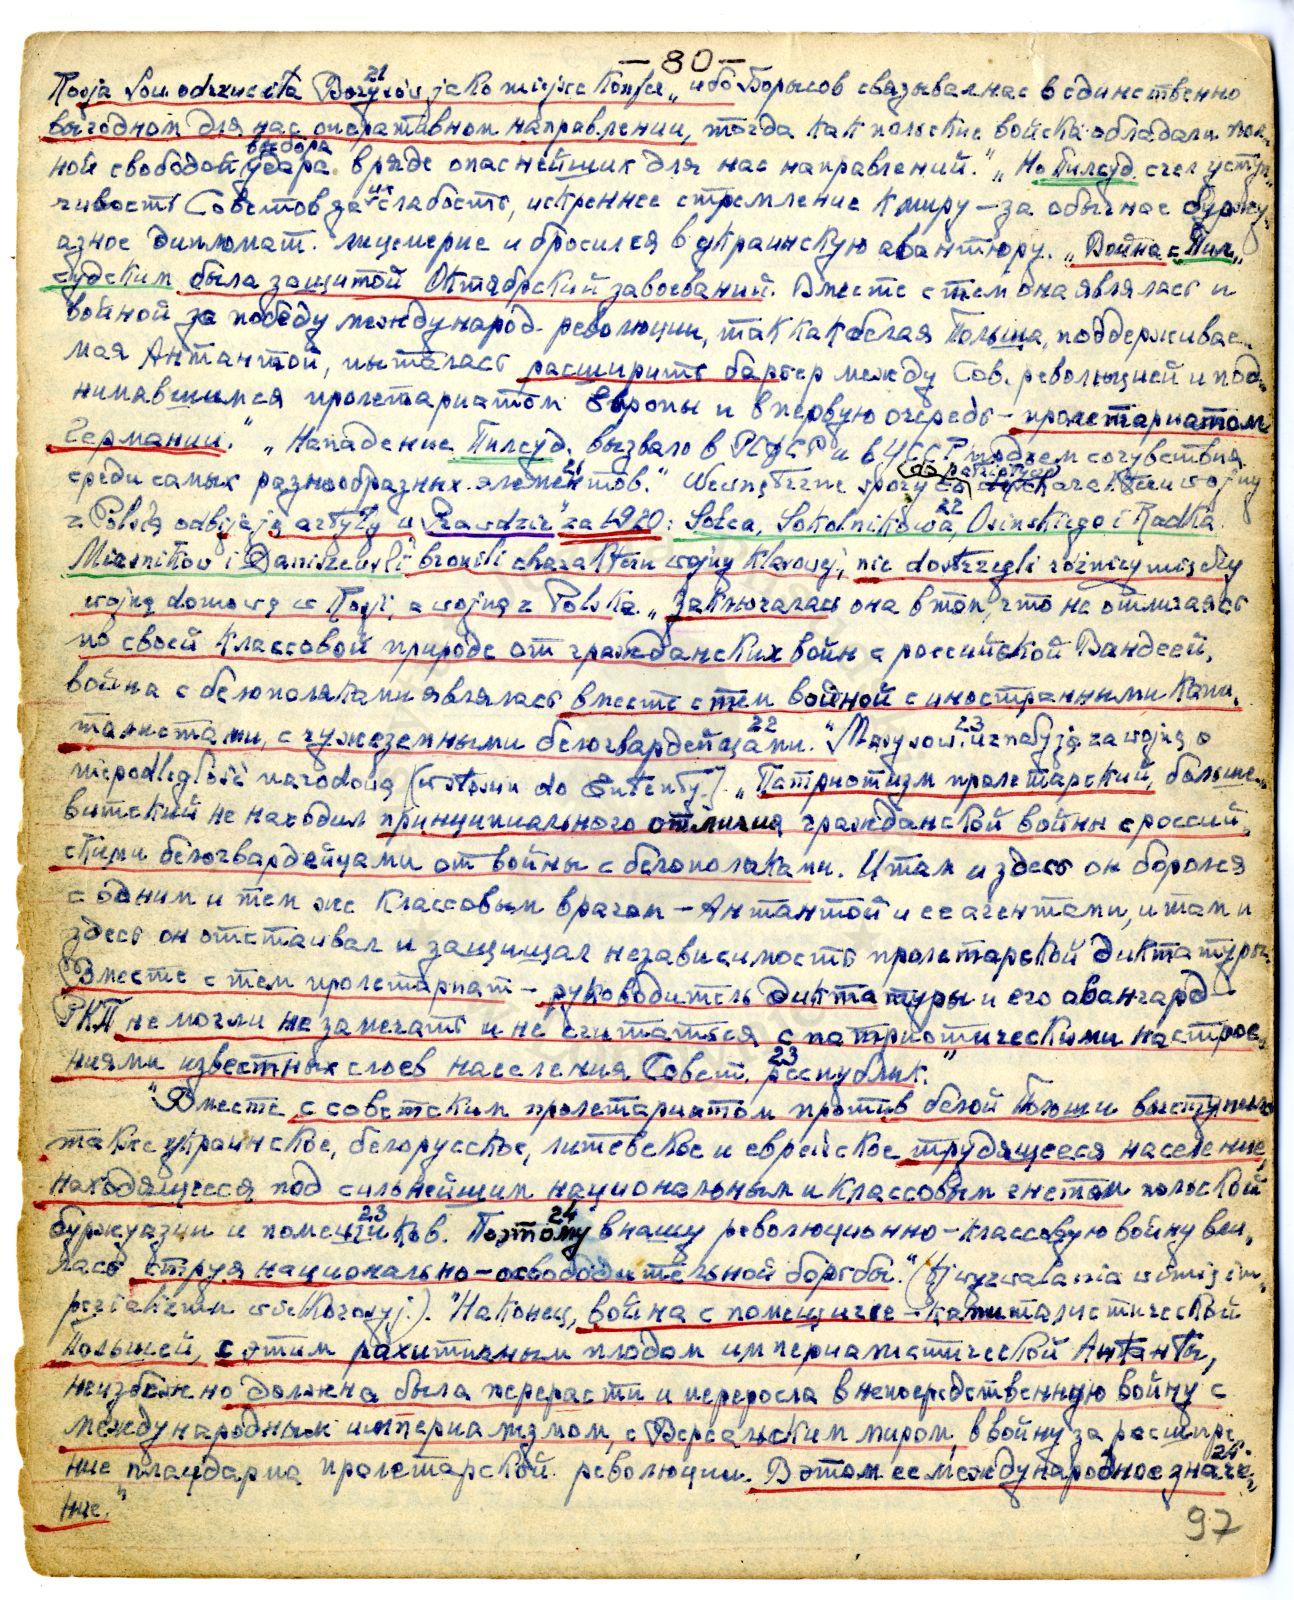 -80-
Rosja Sow odrzuciła Borysów 21 jako miejsce konfer „ибо Борысов связывал нас в единственно
выгодном для нас оперативном направлении, тогда как польские войска обладали пол-
ной свободой выбора удара в ряде опаснейших для нас направлений." „Но Пилсуд. счел уступ-
чивость Советов за их слабость, искреннее стремление к миру — за обычное буржу-
азное дипломат. лицемерие и бросился в украинскую авантюру. „Война с „Пил-
судским была защитой Октябрьский завоеваний. Вместе с тем она являлась и
войной за победу международ. революции, так как белая Польша, поддерживае-
мая Антантой, пыталась расширить барьер между Сов. революцией и под-
нимавшимся пролетариатом Европы и в первую очередь — пролетариатом
Германии." „Нападение Пилсуд. вызвало в РСФСР и в УССР подъем сочувствия
среди самых разнообразных элементов." 21 Wewnętrzne spory co do charakteru wojny
z Polską odbijają artykuły w „Prawdzie" za 1920: Solca, Sokolnikowa, 22 Osinskiego i Radka.
Miasnikow i Daniszewski bronili charakteru wojny klasowej, nie dostrzegli różnicy między
wojną domową w Rosji, a wojną z Polską. „Заключалась она в том, что не отличаясь
по своей классовой природе от гражданских войн с российской Вандеей,
война с белополяками являлась вместе с тем войной с иностранными капи-
талистами, с чужеземными белогвардейцами." 22 Masy sow. 23 uznają ją za wojnę o
niepodległość narodową (w stosun do Ententy). „Патриотизм пролетарский, больше-
витский не находил принципиального отличия гражданской войны с россий-
скими белогвардейцами от войны с белополяками. И там и здесь он боролся
с одним и тем же классовым врагом — Антантой и ее агентами, и там и
здесь он отстаивал и защищал независимость пролетарской диктатуры.
Вместе с тем пролетариат — руководитель диктатуры и его авангард —
РКП не могли не замечать и не считаться с патриотическими настрое-
ниями известных слоев населения Совет. республик." 23
"Вместе с советским пролетариатом против белой Польши выступило
также украинское, белорусское, литовское и еврейское трудящееся население,
находящееся под сильнейшим национальным и классовым гнетом польской
буржуазии и помещиков. 23 Поэтому 24 в нашу революционно-классовую войну вли-
лась струя национально-освободительной борьбы." (
"Наконец, война с помещичье-капиталистической
Польшей, с этим рахитичным плодом империалистической Антанты,
неизбежно должна была перерасти и переросла в непосредственную войну с
международным империализмом, с Версальским миром, в войну за расшире-
ние плацдарма пролетарской революции. В этом ее международное значе- 24
ние."
97